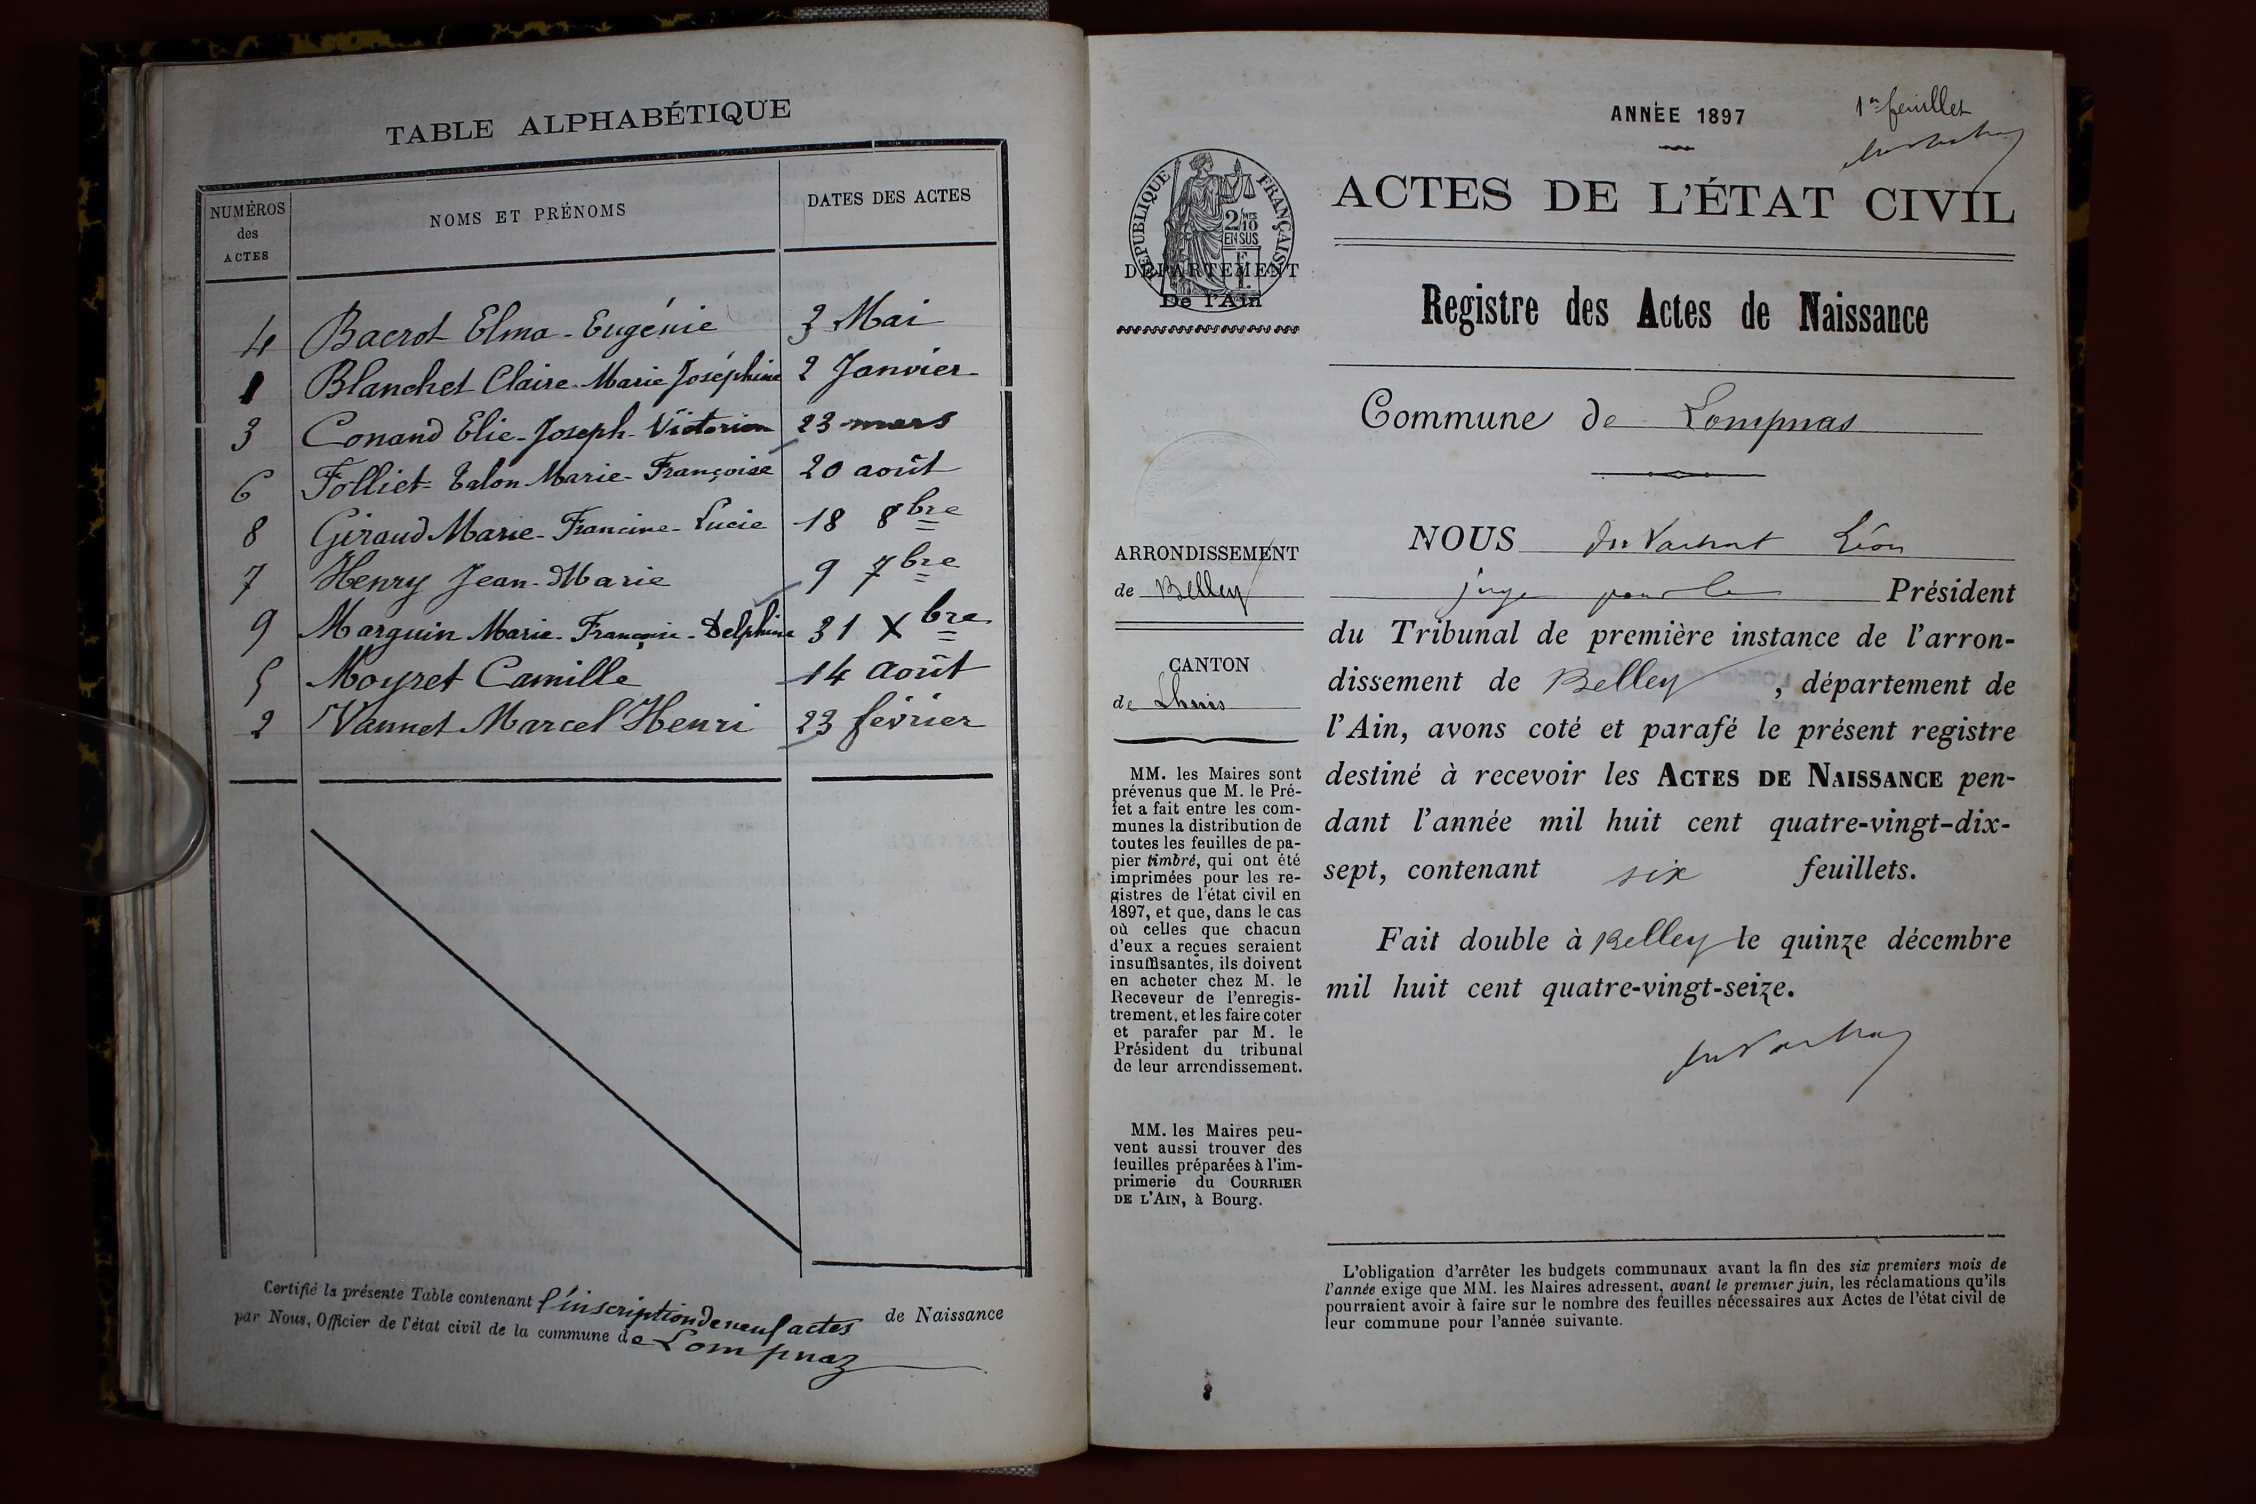 TABLE ALPHABÉTIQUE
NUMÉROS des ACTES
NOMS ET PRÉNOMS
DATES DES ACTES
4 Bacrot Elma-Eugénie 3 Mai
1 Blanchet Claire-Marie Joséphine 2 Janvier
3 Conand Elie-Joseph-Victorien 23 mars
6 Folliet-Talon Marie-Françoise 20 août
8 Giraud Marie-Francine-Lucie 18 8bre
7 Henry Jean-Marie 9 7bre
9 Marguin Marie-Françoise-Delphine 31 Xbre
5 Moyret Camille 14 août
2 Vannet Marcel Henri 23 février
Certifié la présente Table contenant l'inscription de neuf actes de Naissance
par Nous, Officier de l'état civil de la commune de Lompnaz
ANNÉE 1897
1er feuillet
RÉPUBLIQUE FRANÇAISE
2/10 MES
EN SUS
DÉPARTEMENT
De l'Ain
ACTES DE L'ÉTAT CIVIL
Registre des Actes de Naissance
Commune de Lompnas
ARRONDISSEMENT
de Belley
CANTON
de Lhuis
MM. les Maires sont
prévenus que M. le Pré-
fet a fait entre les com-
munes la distribution de
toutes les feuilles de pa-
pier timbré, qui ont été
imprimées pour les re-
gistres de l'état civil en
1897, et que, dans le cas
où celles que chacun
d'eux a reçues seraient
insuffisantes, ils doivent
en acheter chez M. le
Receveur de l'enregis-
trement, et les faire coter
et parafer par M. le
Président du tribunal
de leur arrondissement.
MM. les Maires peu-
vent aussi trouver des
feuilles préparées à l'im-
primerie du COURRIER
DE L'AIN, à Bourg.
NOUS du Vachat Léon
juge pour le Président
du Tribunal de première instance de l'arron-
dissement de Belley, département de
l'Ain, avons coté et parafé le présent registre
destiné à recevoir les ACTES DE NAISSANCE pen-
dant l'année mil huit cent quatre-vingt-dix-
sept, contenant six feuillets.
Fait double à Belley le quinze décembre
mil huit cent quatre-vingt-seize.
L'obligation d'arrêter les budgets communaux avant la fin des six premiers mois de
l'année exige que MM. les Maires adressent, avant le premier juin, les réclamations qu'ils
pourraient avoir à faire sur le nombre des feuilles nécessaires aux Actes de l'état civil de
leur commune pour l'année suivante.